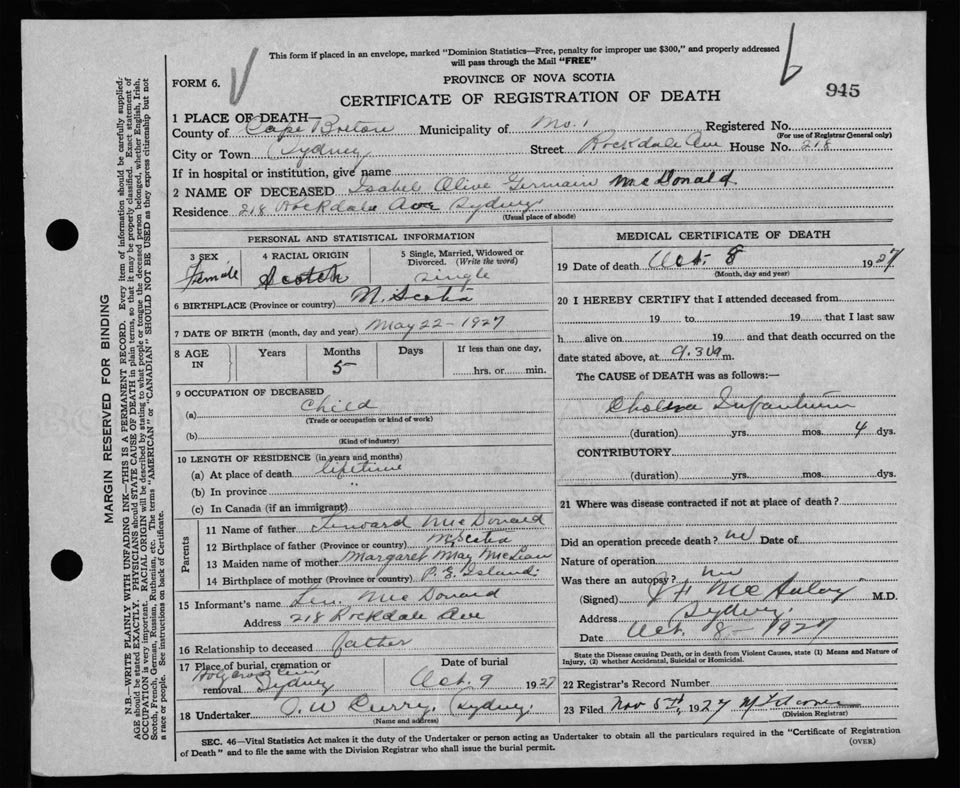 This form if placed in an envelope, marked "Dominion Statistics—Free, penalty for improper use $300," and properly addressed
will pass through the Mail "FREE"
FORM 6.
PROVINCE OF NOVA SCOTIA
CERTIFICATE OF REGISTRATION OF DEATH
945
1 PLACE OF DEATH—
County of Cape Breton Municipality of No. 1 Registered No.
(For use of Registrar General only)
City or Town Sydney Street Rockdale Ave House No. 218
If in hospital or institution, give name
2 NAME OF DECEASED Isabel Olive Germain McDonald
Residence 218 Rockdale Ave Sydney.
(Usual place of abode)
PERSONAL AND STATISTICAL INFORMATION
3 SEX Female
4 RACIAL ORIGIN Scotch
5 Single, Married, Widowed or Divorced. (Write the word) Single
6 BIRTHPLACE (Province or country) N. Scotia
7 DATE OF BIRTH (month, day and year) May 22 - 1927
8 AGE IN Years Months Days If less than one day,
5 hrs. or min.
9 OCCUPATION OF DECEASED
(a) Child
(Trade or occupation or kind of work)
(b)
(Kind of industry)
10 LENGTH OF RESIDENCE (in years and months)
(a) At place of death lifetime
(b) In province "
(c) In Canada (if an immigrant)
Parents
11 Name of father McDonald
12 Birthplace of father (Province or country) N Scotia
13 Maiden name of mother Margaret May McLean
14 Birthplace of mother (Province or country) P. E. Island.
15 Informant's name Len. McDonald
Address 218 Rockdale Ave
16 Relationship to deceased father
17 Place of burial, cremation or Date of burial
Holy Cross Cem
removal Sydney Oct. 9 1927
18 Undertaker J. W Curry. Sydney.
(Name and address)
MEDICAL CERTIFICATE OF DEATH
19 Date of death Oct. 8 1927
(Month, day and year)
20 I HEREBY CERTIFY that I attended deceased from
19 to 19 that I last saw
h alive on 19 and that death occurred on the
date stated above, at 9.30 a m.
The CAUSE of DEATH was as follows:—
Cholera Infantum
(duration) yrs. mos. 4 dys.
CONTRIBUTORY
(duration) yrs. mos. dys.
21 Where was disease contracted if not at place of death?
Did an operation precede death? no Date of
Nature of operation
Was there an autopsy? no
(Signed) McAulay M.D.
Address Sydney.
Date Oct. 8 - 1927
State the Disease causing Death, or in death from Violent Causes, state (1) Means and Nature of
Injury, (2) whether Accidental, Suicidal or Homicidal.
22 Registrar's Record Number
23 Filed Nov 5th, 1927
(Division Registrar)
SEC. 46—Vital Statistics Act makes it the duty of the Undertaker or person acting as Undertaker to obtain all the particulars required in the "Certificate of Registration
of Death" and to file the same with the Division Registrar who shall issue the burial permit.
(OVER)
MARGIN RESERVED FOR BINDING
N.B.—WRITE PLAINLY WITH UNFADING INK—THIS IS A PERMANENT RECORD. Every item of information should be carefully supplied.
AGE should be stated EXACTLY. PHYSICIANS should STATE CAUSE OF DEATH in plain terms, so that it may be properly classified. Exact statement of
OCCUPATION is very important. RACIAL ORIGIN will be described by stating to what people or tongue the deceased person belonged, whether English, Irish,
Scotch, French, German, Russian, Ruthenian, etc. The terms "AMERICAN" or "CANADIAN" SHOULD NOT BE USED as they express citizenship but not
a race or people. See instructions on back of Certificate.